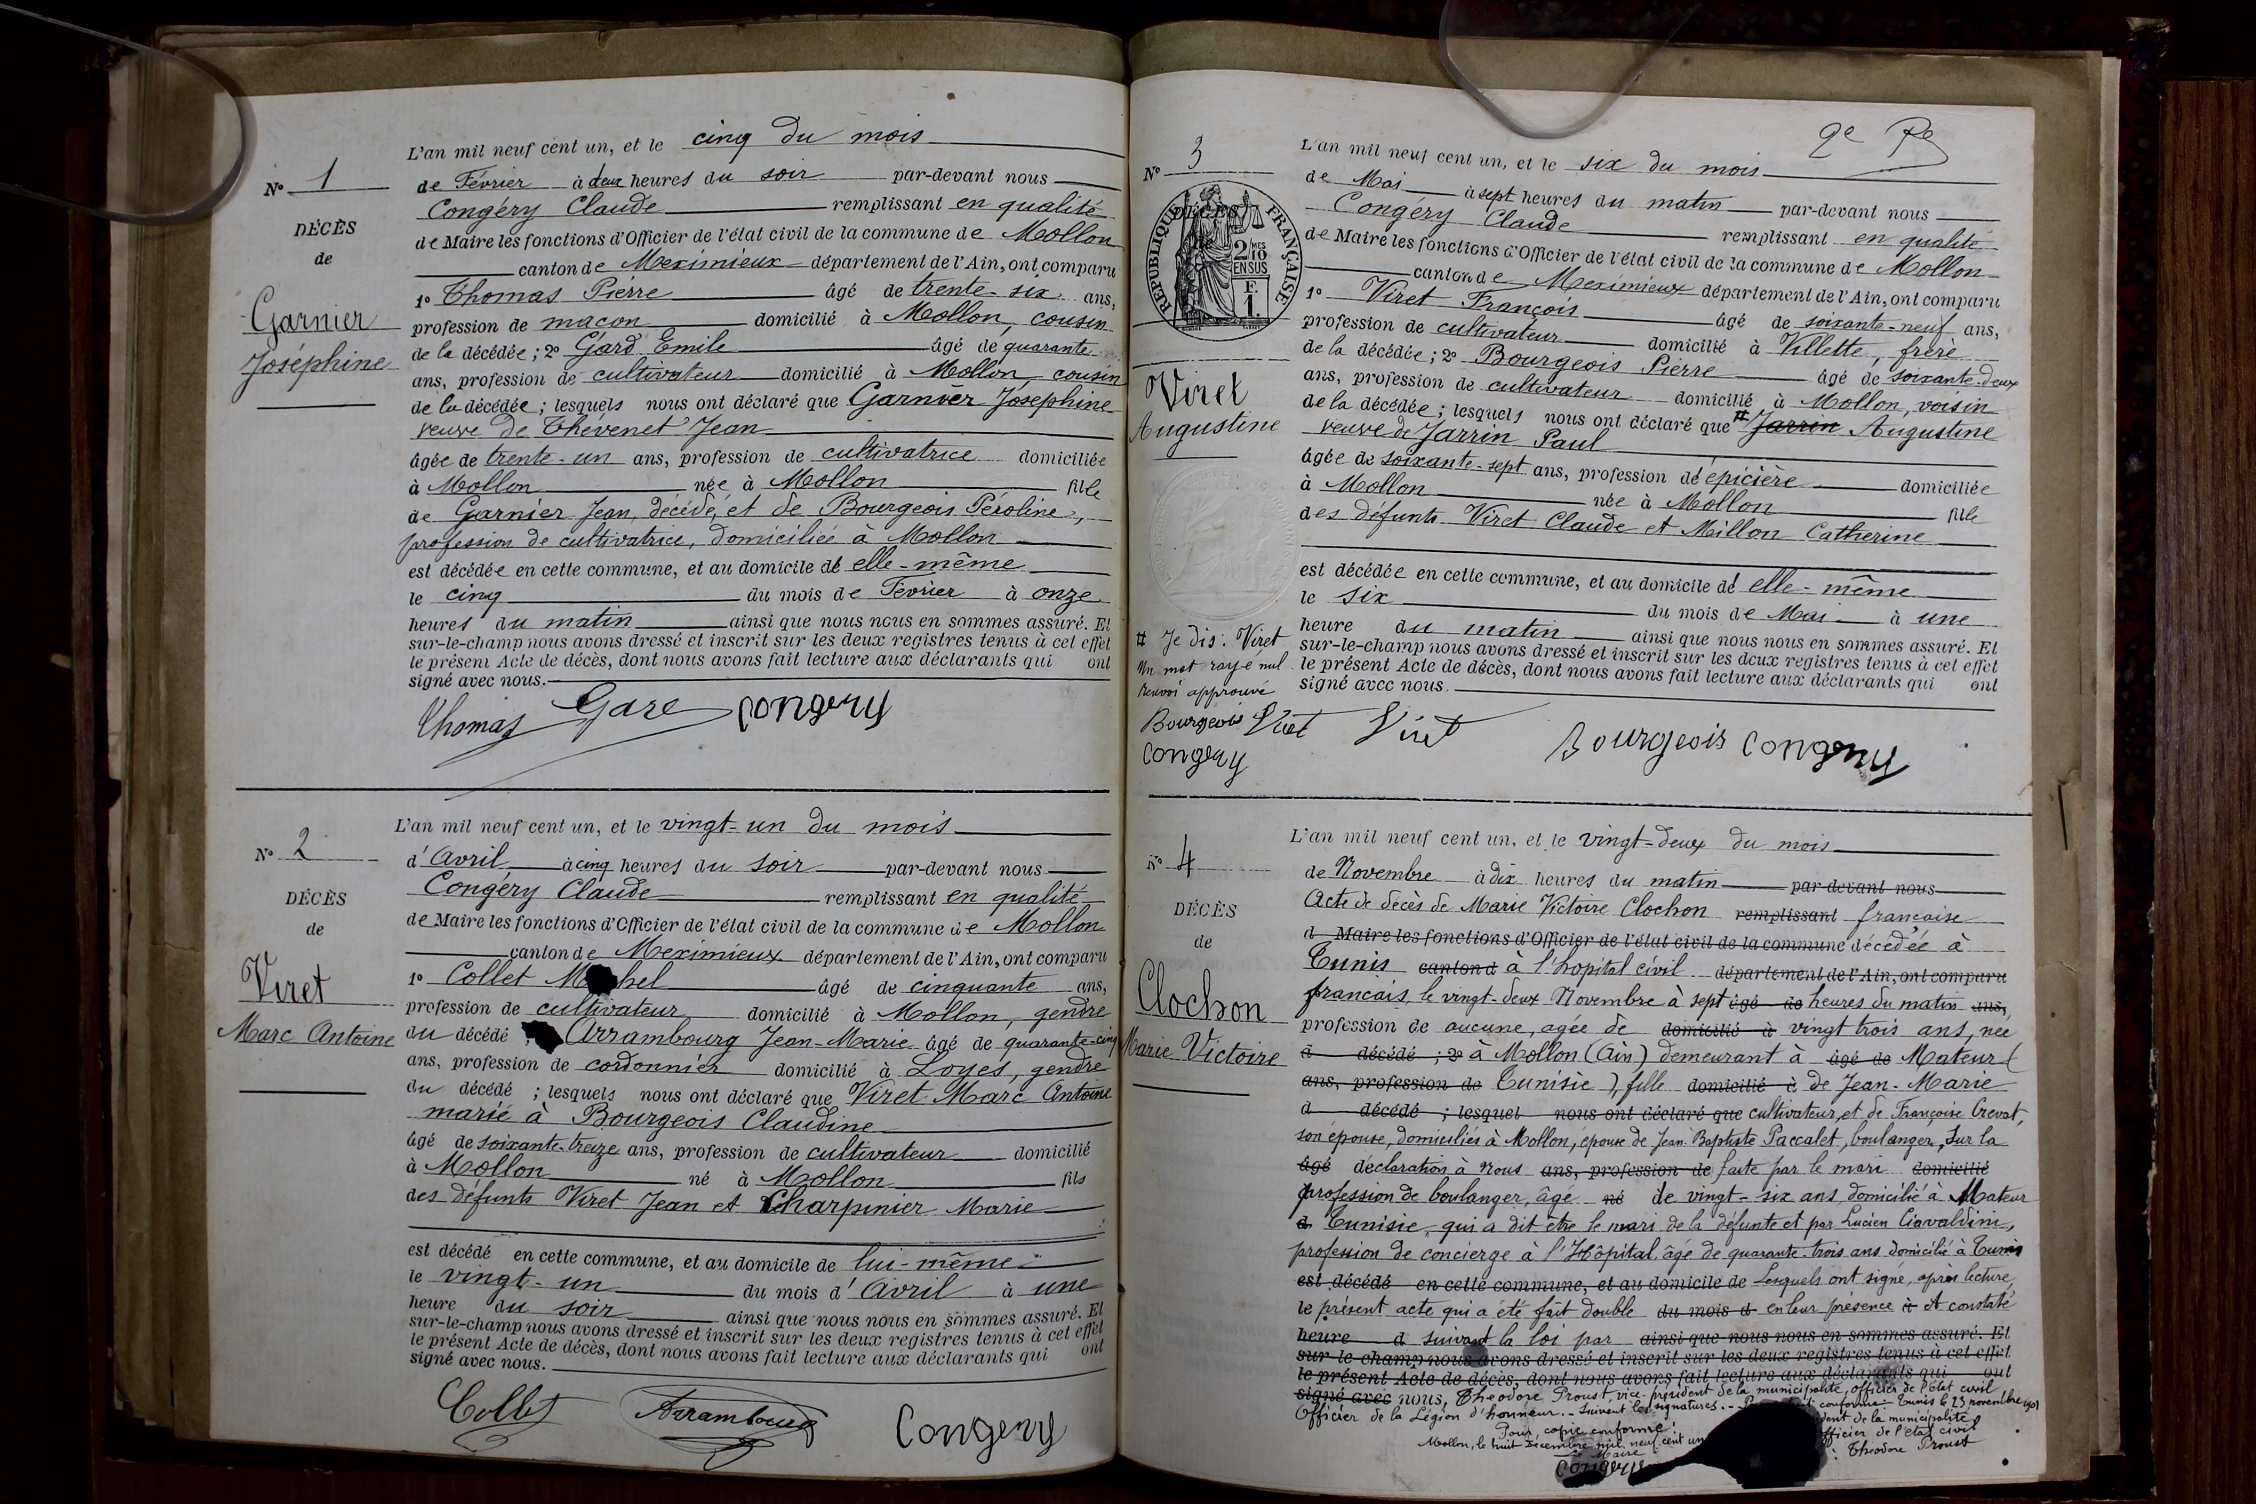 N° 1
DÉCÈS
de
Garnier
Joséphine
L'an mil neuf cent un, et le cinq du mois
de Février à deux heures du soir par-devant nous
Congéry Claude remplissant en qualité
de Maire les fonctions d'Officier de l'état civil de la commune de Mollon
canton de Meximieux département de l'Ain, ont comparu
1° Thomas Pierre âgé de trente-six ans,
profession de maçon domicilié à Mollon, cousin
de la décédée ; 2° Gard Emile âgé de quarante
ans, profession de cultivateur domicilié à Mollon cousin
de la décédée ; lesquels nous ont déclaré que Garnier Joséphine
veuve de Thévenet Jean
âgée de trente-un ans, profession de cultivatrice domiciliée
à Mollon née à Mollon fille
de Garnier Jean, décédé, et de Bourgeois Péroline,
profession de cultivatrice, domiciliée à Mollon
est décédée en cette commune, et au domicile de elle-même
le cinq du mois de Février à onze
heures du matin ainsi que nous nous en sommes assuré. Et
sur-le-champ nous avons dressé et inscrit sur les deux registres tenus à cet effet
le présent Acte de décès, dont nous avons fait lecture aux déclarants qui ont
signé avec nous.
Thomas Gare Congery
N° 2
DÉCÈS
de
Viret
Marc Antoine
L'an mil neuf cent un, et le vingt-un du mois
d'Avril à cinq heures du soir par-devant nous
Congéry Claude remplissant en qualité
de Maire les fonctions d'Officier de l'état civil de la commune de Mollon
canton de Meximieux département de l'Ain, ont comparu
1° Collet M hel âgé de cinquante ans,
profession de cultivateur domicilié à Mollon, gendre
du décédé Arrambourg Jean-Marie âgé de quarante-cinq
ans, profession de cordonnier domicilié à Loyes, gendre
du décédé ; lesquels nous ont déclaré que Viret Marc Antoine
marié à Bourgeois Claudine
âgé de soixante-treize ans, profession de cultivateur domicilié
à Mollon né à Mollon fils
des défunts Viret Jean et Charpinier Marie
est décédé en cette commune, et au domicile de lui-même
le vingt-un du mois d'Avril à une
heure du soir ainsi que nous nous en sommes assuré. Et
sur-le-champ nous avons dressé et inscrit sur les deux registres tenus à cet effet
le présent Acte de décès, dont nous avons fait lecture aux déclarants qui ont
signé avec nous.
Collet Arrambourg Congery
2e
N° 3
DÉCÈS
RÉPUBLIQUE FRANÇAISE
2/10 MES
EN SUS
F.
1.
Viret
Augustine
L'an mil neuf cent un, et le six du mois
de Mai à sept heures du matin par-devant nous
Congéry Claude remplissant en qualité
de Maire les fonctions d'Officier de l'état civil de la commune de Mollon
canton de Meximieux département de l'Ain, ont comparu
1° Viret François âgé de soixante-neuf ans,
profession de cultivateur domicilié à Villette, frère
de la décédée ; 2° Bourgeois Pierre âgé de soixante-deux
ans, profession de cultivateur domicilié à Mollon, voisin
de la décédée ; lesquels nous ont déclaré que # Jarrin Augustine
veuve de Jarrin Paul
âgée de soixante-sept ans, profession de épicière domiciliée
à Mollon née à Mollon fille
des défunts Viret Claude et Millon Catherine
est décédée en cette commune, et au domicile de elle-même
le six du mois de Mai à une
heure du matin ainsi que nous nous en sommes assuré. Et
sur-le-champ nous avons dressé et inscrit sur les deux registres tenus à cet effet
le présent Acte de décès, dont nous avons fait lecture aux déclarants qui ont
signé avec nous.
# Je dis: Viret
Un mot rayé nul
Renvoi approuvé
Bourgeois Viret
Congery
Viret Bourgeois Congery
N° 4
DÉCÈS
de
Clochon
Marie Victoire
L'an mil neuf cent un, et le vingt-deux du mois
de Novembre à dix heures du matin par devant nous
Acte de décès de Marie Victoire Clochon remplissant française
d Maire les fonctions d'Officier de l'état civil de la commune décédée à
Tunis canton d à l'hopital civil département de l'Ain, ont comparu
francais, le vingt-deux Novembre à sept âgé de heures du matin ans,
profession de aucune, agée de domicilié à vingt trois ans, née
d décédé ; 2° à Mollon (Ain) demeurant à âgé de Mateur (
ans, profession de Tunisie), fille domicilié à de Jean-Marie
d décédé ; lesquel nous ont déclaré que cultivateur, et de Françoise Crevat,
son épouse, domiciliés à Mollon, épouse de Jean-Baptiste Paccalet, boulanger, Sur la
âgé déclaration à nous ans, profession de faite par le mari domicilié
profession de boulanger, âge né de vingt-six ans, domicilié à Mateur
d Tunisie, qui a dit être le mari de la défunte et par Lucien Ciavaldini,
profession de concierge à l'Hôpital âgé de quarante-trois ans domicilié à Tunis
est décédé en cette commune, et au domicile de Lesquels ont signé, après lecture,
le présent acte qui a été fait double du mois d en leur présence à et constaté
heure d suivant la loi par ainsi que nous nous en sommes assuré. Et
sur-le-champ nous avons dressé et inscrit sur les deux registres tenus à cet effet
le présent Acte de décès, dont nous avons fait lecture aux déclarants qui ont
signé avec nous, Théodore Proust, vice-président de la municipalité, officier de l'état civil
Officier de la Légion d'honneur. - Suivent les signatures. - conforme Tunis le 23 novembre 1901
dent de la municipalité
Pour copie conforme
fficier de l'état civil
Mollon, le huit Décembre mil neuf cent un
: Théodore Proust
Le Maire
Congery